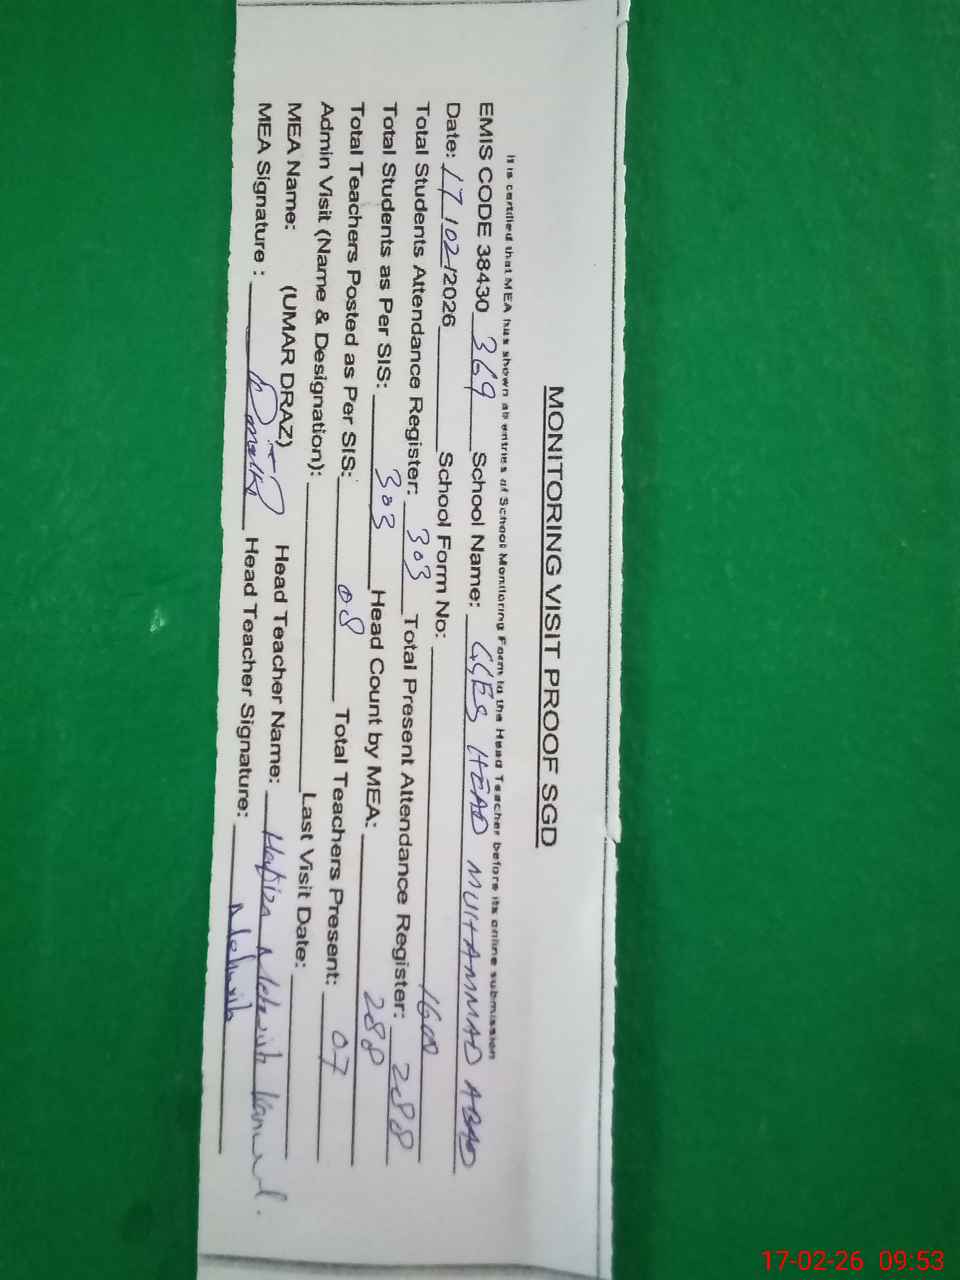 MONITORING VISIT PROOF SGD
It is certified that MEA has shown all entries of School Monitoring Form to the Head Teacher before its online submission
EMIS CODE 38430 369 School Name: GGES HEAD MUHAMMAD ABAD
Date: 17/02/2026 School Form No: 1600
Total Students Attendance Register: 303 Total Present Attendance Register: 288
Total Students as Per SIS: 303 Head Count by MEA: 288
Total Teachers Posted as Per SIS: 08 Total Teachers Present: 07
Admin Visit (Name & Designation): Last Visit Date:
MEA Name: (UMAR DRAZ) Head Teacher Name: Hafiza
MEA Signature : Head Teacher Signature:
17-02-26 09:53